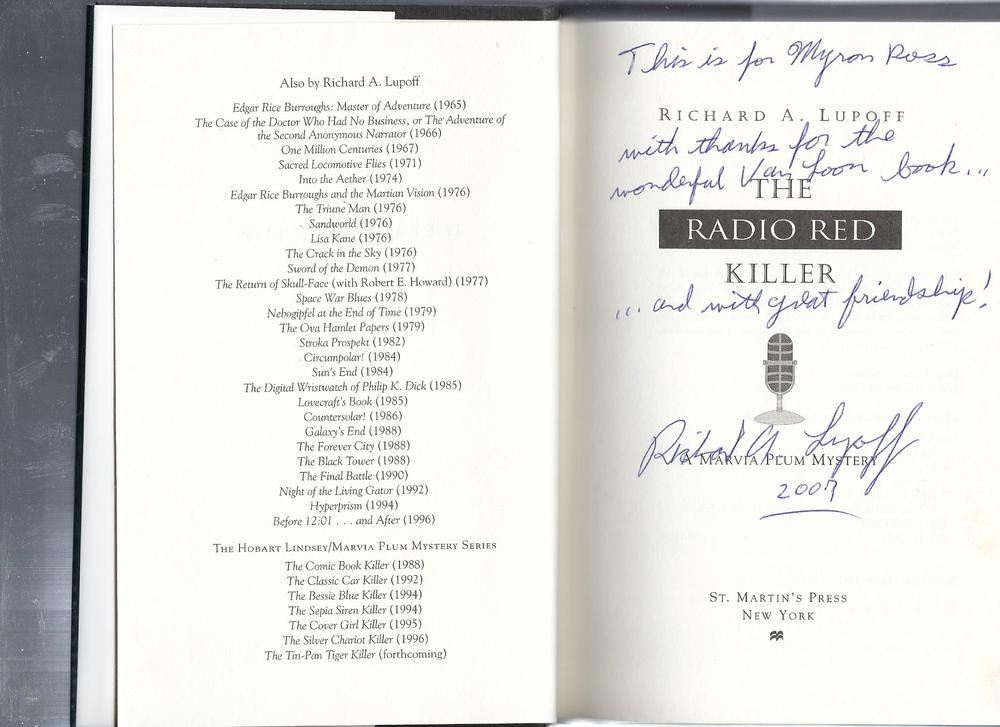 Also by Richard A. Lupoff
Edgar Rice Burroughs: Master of Adventure (1965)
The Case of the Doctor Who Had No Business, or The Adventure of
the Second Anonymous Narrator (1966)
One Million Centuries (1967)
Sacred Locomotive Flies (1971)
Into the Aether (1974)
Edgar Rice Burroughs and the Martian Vision (1976)
The Triune Man (1976)
Sandworld (1976)
Lisa Kane (1976)
The Crack in the Sky (1976)
Sword of the Demon (1977)
The Return of Skull-Face (with Robert E. Howard) (1977)
Space War Blues (1978)
Nebogipfel at the End of Time (1979)
The Ova Hamlet Papers (1979)
Stroka Prospekt (1982)
Circumpolar! (1984)
Sun's End (1984)
The Digital Wristwatch of Philip K. Dick (1985)
Lovecraft's Book (1985)
Countersolar! (1986)
Galaxy's End (1988)
The Forever City (1988)
The Black Tower (1988)
The Final Battle (1990)
Night of the Living Gator (1992)
Hyperprism (1994)
Before 12:01 . . . and After (1996)
The Hobart Lindsey/Marvia Plum Mystery Series
The Comic Book Killer (1988)
The Classic Car Killer (1992)
The Bessie Blue Killer (1994)
The Sepia Siren Killer (1994)
The Cover Girl Killer (1995)
The Silver Chariot Killer (1996)
The Tin-Pan Tiger Killer (forthcoming)
This is for Myron Ross
Richard A. Lupoff
with thanks for the
wonderful Van Loon book...
THE
RADIO RED
KILLER
... and with great friendship!
Richard A. Lupoff
A Marvia Plum Mystery
2007
St. Martin's Press
New York